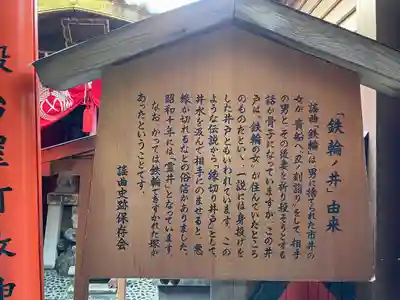 「鉄輪の井」由来
謡曲「鉄輪」は、男に捨てられた市井の
女が、貴船へ「丑の刻詣り」をして、相手
の男とその後妻を祈り殺そうとする
話が骨子になっていますが、この井
戸は、「鉄輪の女」が住んでいたところ
のものだといい、一説には身投げを
した井戸ともいわれています。この
ような伝説から「縁切り井戸」として、
井水を汲んで相手にのませると、悪
縁が切れるなどの俗信がありました。
昭和十年には「霊井」となっています。
なお、かつては鉄輪にちなんだ塚が
あったということです。
謡曲史跡保存会